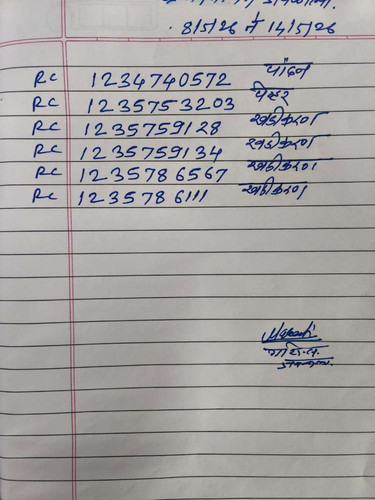 8/5/26 ते 14/5/26
RC 1234740572 पांढन
RC 1235753203
RC 1235759128 खडीकरण
RC 1235759134 खडीकरण
RC 1235786567 खडीकरण
RC 1235786111 खडीकरण